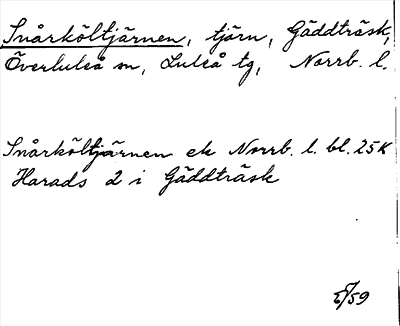 Snårköltjärnen, tjärn, Gäddträsk,
Överluleå sn, Luleå tg, Norrb. l.
Snårköltjärnen ek Norrb. l. bl. 25K
Harads 2 i Gäddträsk
/59